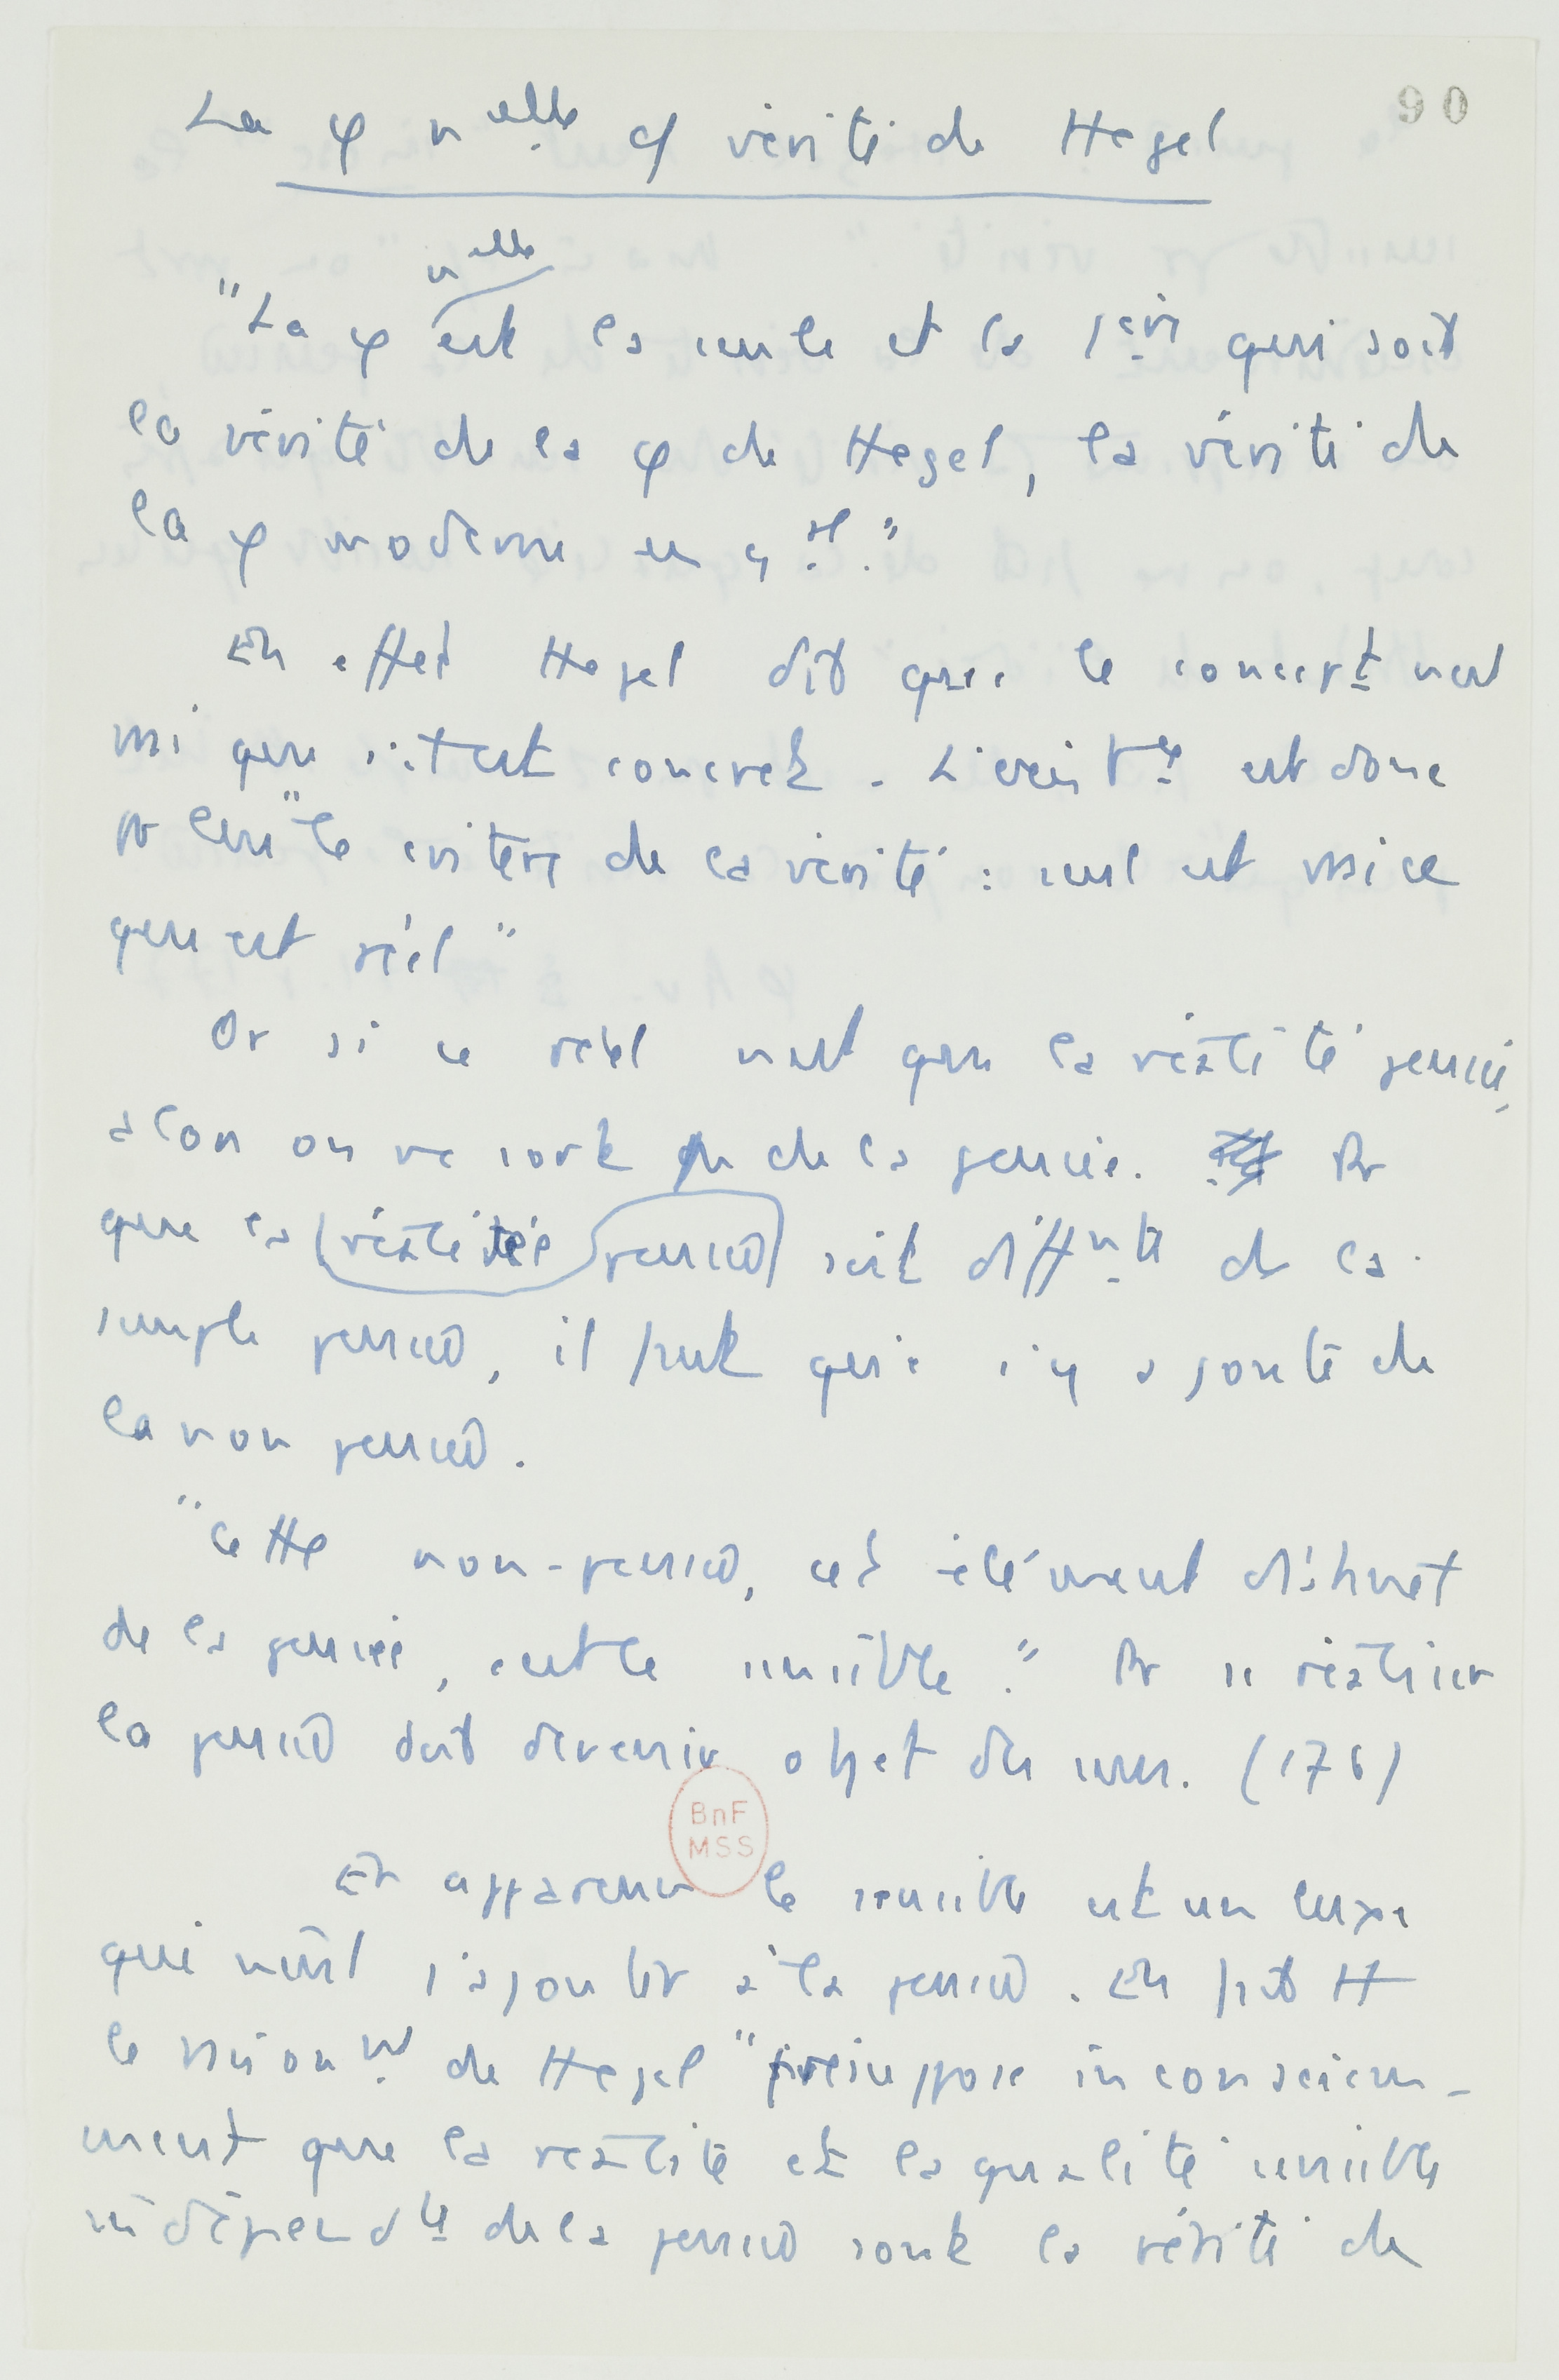 90
La φ nelle c/ vérité de Hegel
nelle
"La φ est la seule et la 1ère qui soit
la vérité de la φ de Hegel, la vérité de
la φ moderne en gal."
En effet Hegel dit que le concept n'est
vrai que s'il est concret. L'existce est donc
pr lui "le critère de la vérité : seul est vrai ce
qui est réel"
Or si ce réel n'est que la réalité pensée,
alors on ne sort pas de la pensée. Pr
que la réalité pensée soit diffnte de la
simple pensée, il faut que s'y ajoute de
la non pensée.
"Cette non-pensée, cet élément distinct
de la pensée, c'est le sensible." Pr se réaliser
la pensée doit devenir objet des sens. (176)
BnF
MSS
En apparence le sensible est un luxe
qui vient s'ajouter à la pensée. En fait tt
le raisonnt de Hegel "présuppose inconsciem-
ment que la réalité et la qualité sensible
indépendte de la pensée sont la vérité de